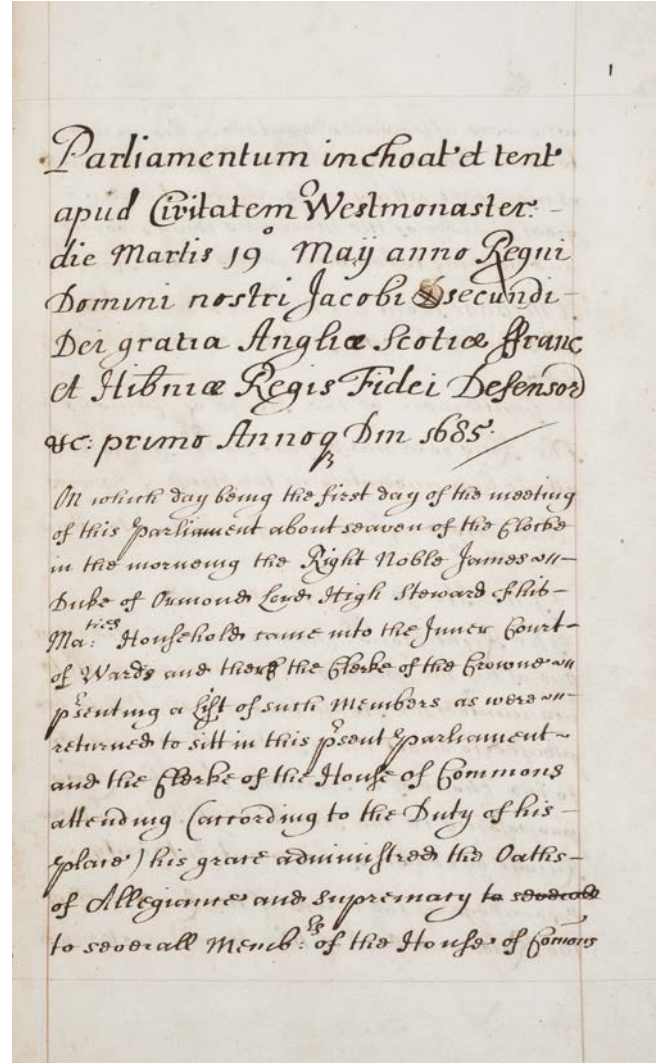 1
Parliamentum inchoat et tent
apud Civitatem Westmonaster: -
die Martis 19° Maij anno Regni
Domini nostri Jacobi secundi -
Dei gratia Angliæ Scotiæ ffranc
et Hibniæ Regis Fidei Defensor
&c: primo Annoq Dm 1685.
On which day being the first day of the meeting
of this Parliament about seaven of the Clocke
in the morneing the Right Noble James
Duke of Ormond Lord High Steward of his -
Ma:ties Household came into the Inner Court -
of Wards and there the Clerke of the Crowne
psenting a List of such Members as were
returned to sitt in this psent Parliament -
and the Clerke of the House of Commons
attending (according to the Duty of his -
place) his grace administred the Oaths -
of Allegiance and supremacy to severall
to severall Memb:rs of the House of Comons